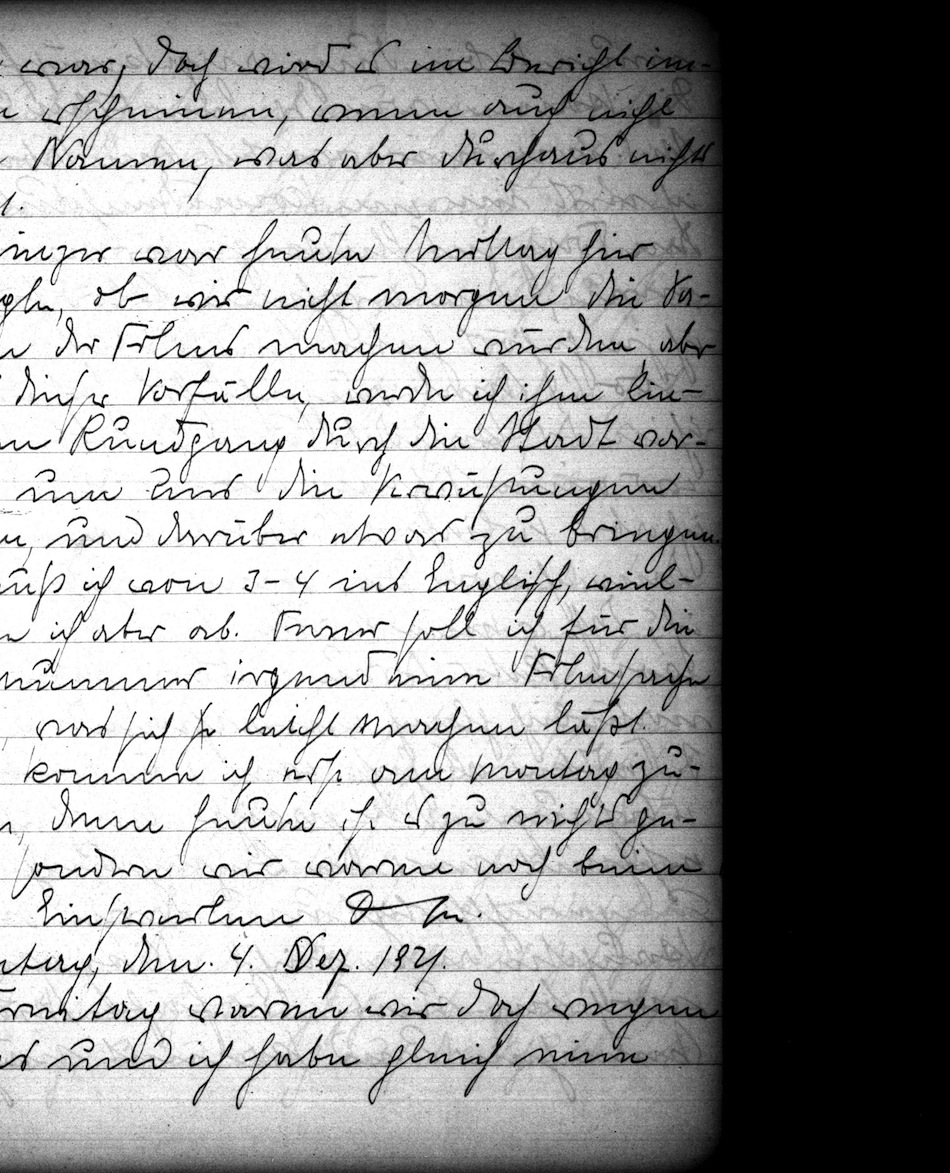 war, doch wird es im Bericht im-
erscheinen, wenn auch nicht
Namen, was aber durchaus nichts
t.
inger war heute Mittag hier
ob wir nicht morgen die
der Films machen würden, aber
dieser Vorfälle, werde ich ihm
Rundgang durch die Stadt vor-
um uns die Verwüstungen
und darüber etwas zu bringen.
uß ich von 3-4 ins Englisch, viel-
ich aber ab. Ferner soll ich für die
nummer irgend eine Filmsache
was sich ja leicht machen läßt.
komme ich erst am Montag zu-
denn heute ist es zu nichts ge-
sondern wir waren noch beim
Einstweilen
ntag, den 4. Dez. 1921.
ormitag waren wir doch wegen
und ich habe gleich eine